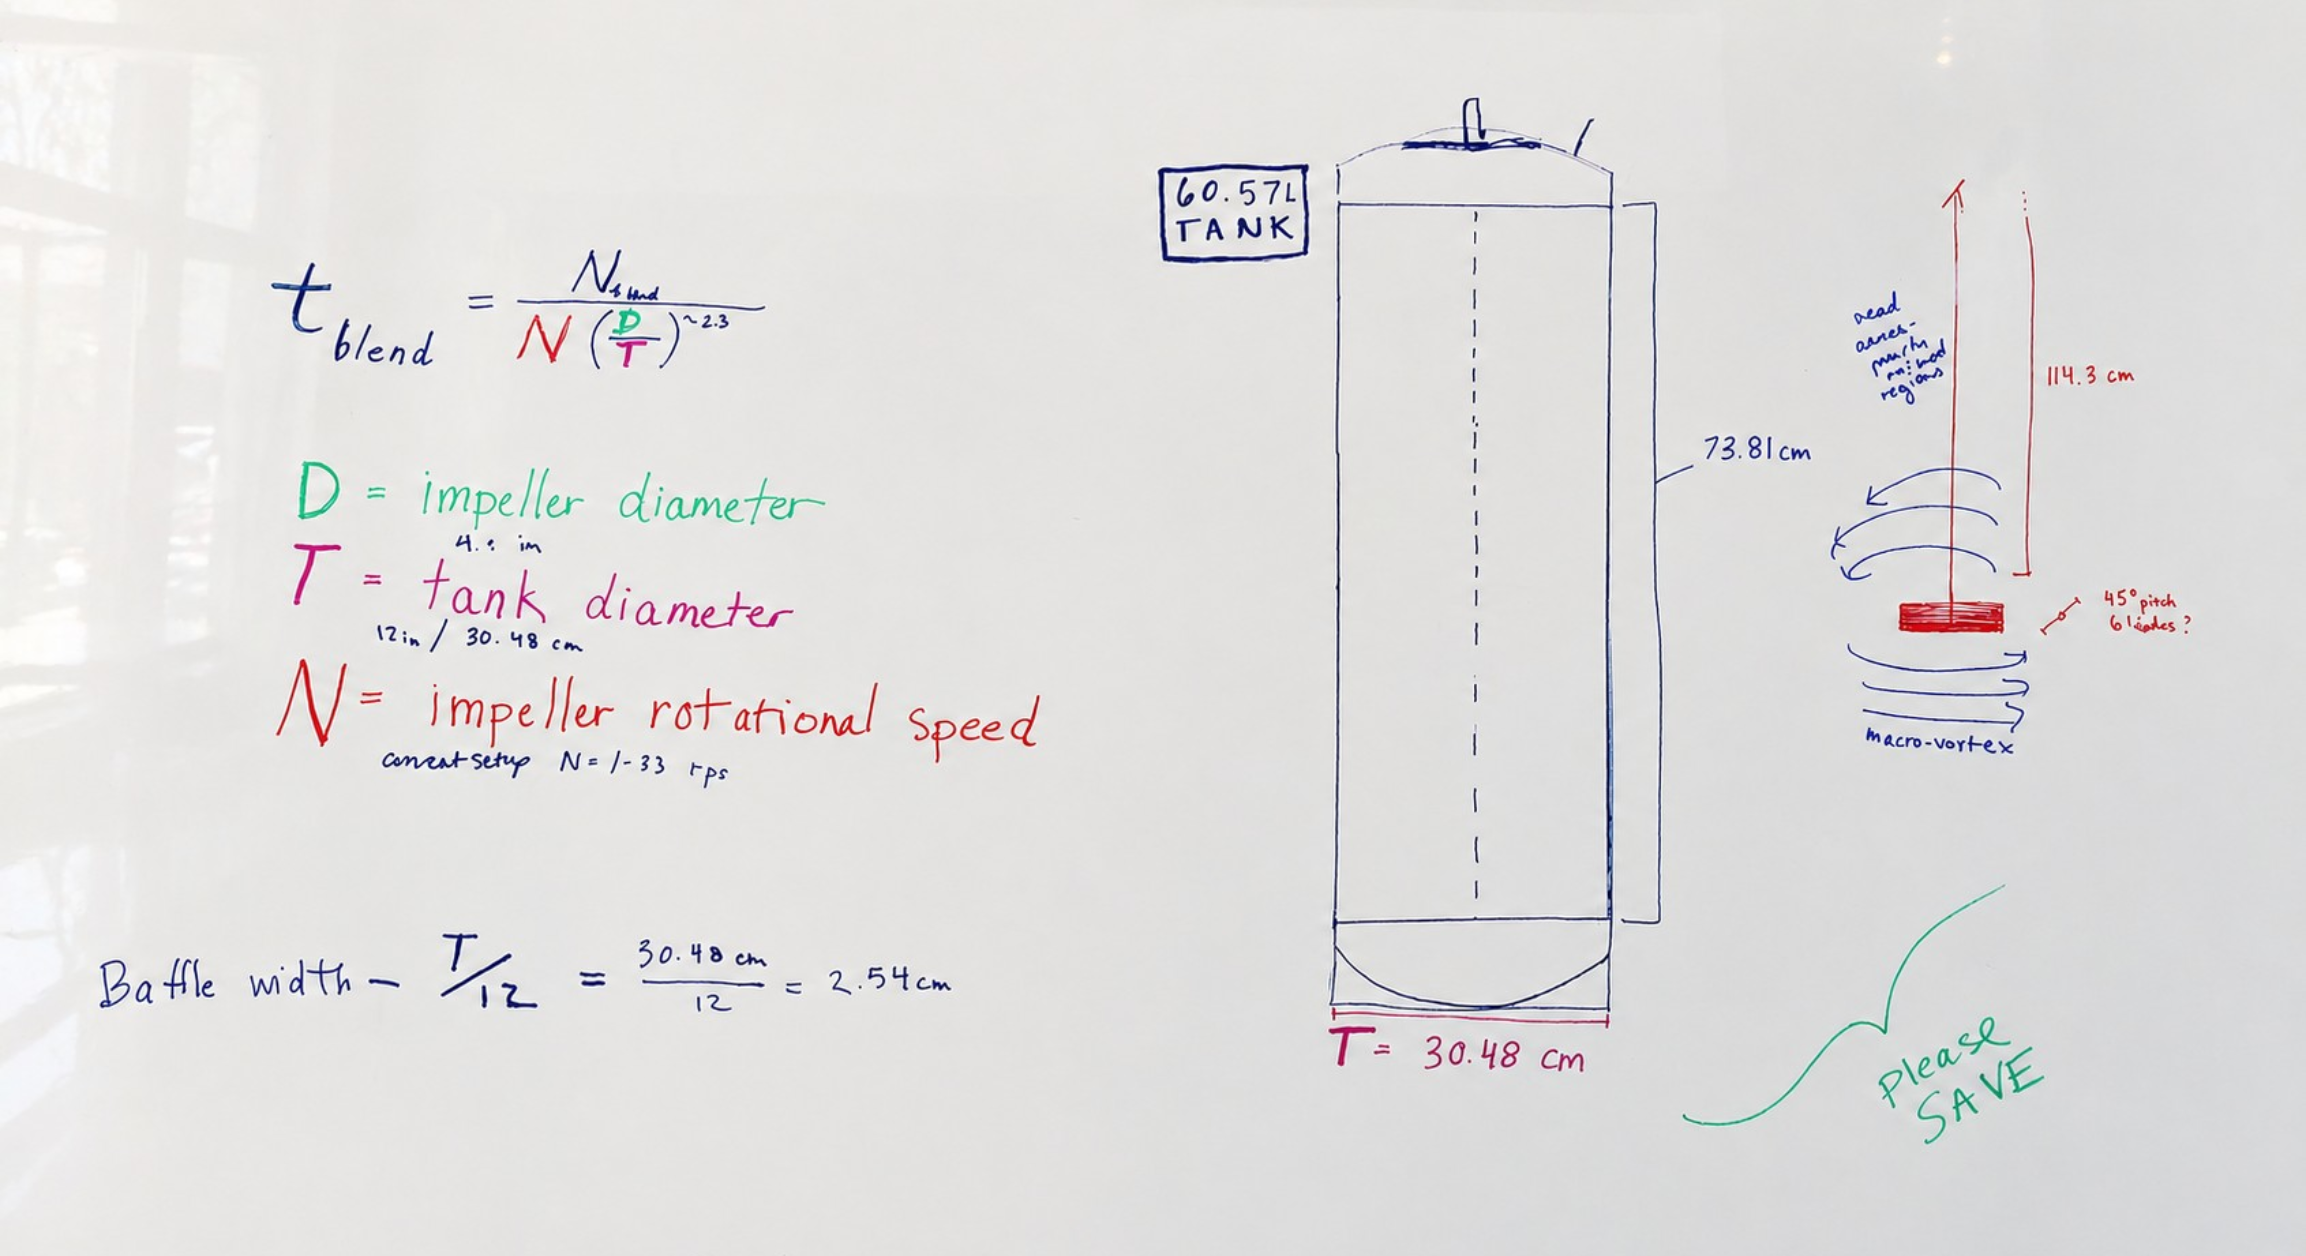 t blend = N blend / N (D/T)^~2.3
D = impeller diameter
in
T = tank diameter
12in / 30.48 cm
N = impeller rotational speed
setup N = 1-33 rps
Baffle width — T/12 = 30.48 cm / 12 = 2.54 cm
60.57L
TANK
73.81 cm
T = 30.48 cm
regions
114.3 cm
45° pitch
6 ?
macro-vortex
Please
SAVE